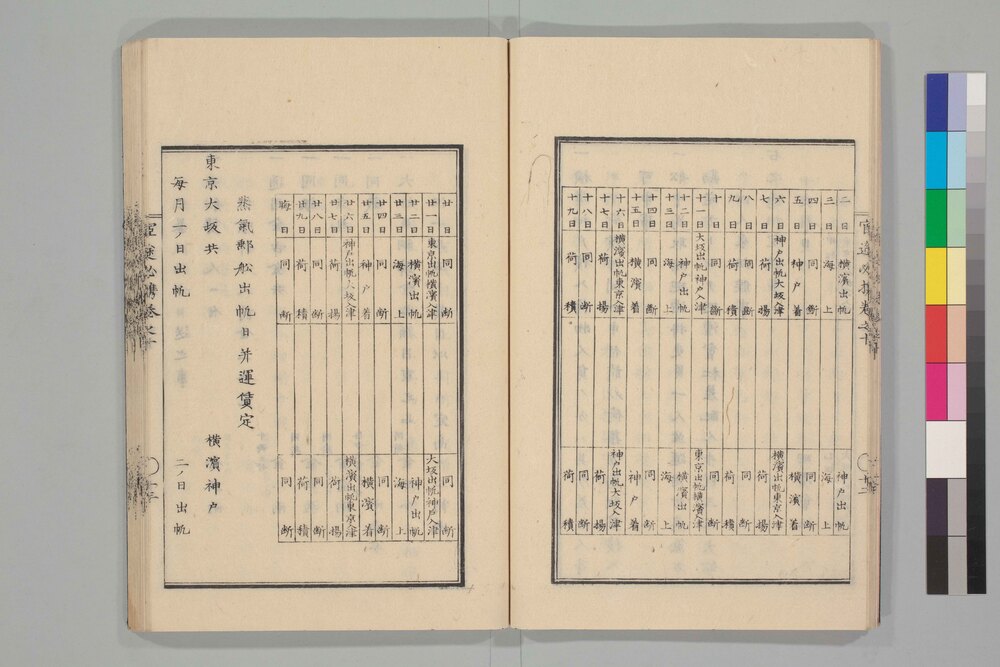 二日 横濱出帆 神戸出帆
三日 海上 海上
四日 同断 同断
五日 神戸着 横濱着
六日 神戸出帆大坂入津 横濱出帆東京入津
七日 荷揚 荷揚
八日 同断 同断
九日 荷積 荷積
十日 同斷 同断
十一日 大坂出帆神戸入津 東京出帆横濱入津
十二日 神戸出帆 横濱出帆
十三日 海上 海上
十四日 同斷 同断
十五日 横濱着 神戸着
十六日 横濱出帆東京入津 神戸出帆大坂入津
十七日 荷揚 荷揚
十八日 同断 同断
十九日 荷積 荷積
廿日 同断 同断
廿一日 東京出帆横濱入津 大坂出帆神戸入津
廿二日 横濱出帆 神戸出帆
廿三日 海上 海上
廿四日 同断 同断
廿五日 神戸着 横濱着
廿六日 神戸出帆大坂入津 横濱出帆東京入津
廿七日 荷揚 荷揚
廿八日 同断 同断
廿九日 荷積 荷積
晦日 同断 同断
蒸氣郵舩出帆日并運賃定
東京大坂共 横濱神戸
毎月一ノ日出帆 二ノ日出帆